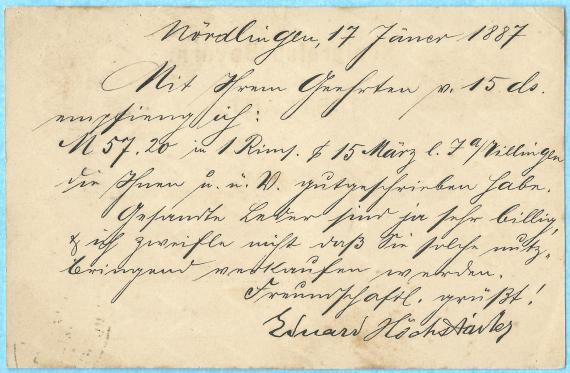 Nördlingen, 17 Jäner 1887
Mit Ihrem Geehrten v. 15 ds.
empfieng ich:
M 57.20 in 1 Rims. p 15 März l. J a/Villingen
die Ihnen u. ü. V. gutgeschrieben habe.
Gesandte Leder sind ja sehr billig,
& ich zweifle nicht daß Sie solche nutz-
bringend verkaufen werden.
Freundschaftl. grüßt!
Eduard Höchstädter